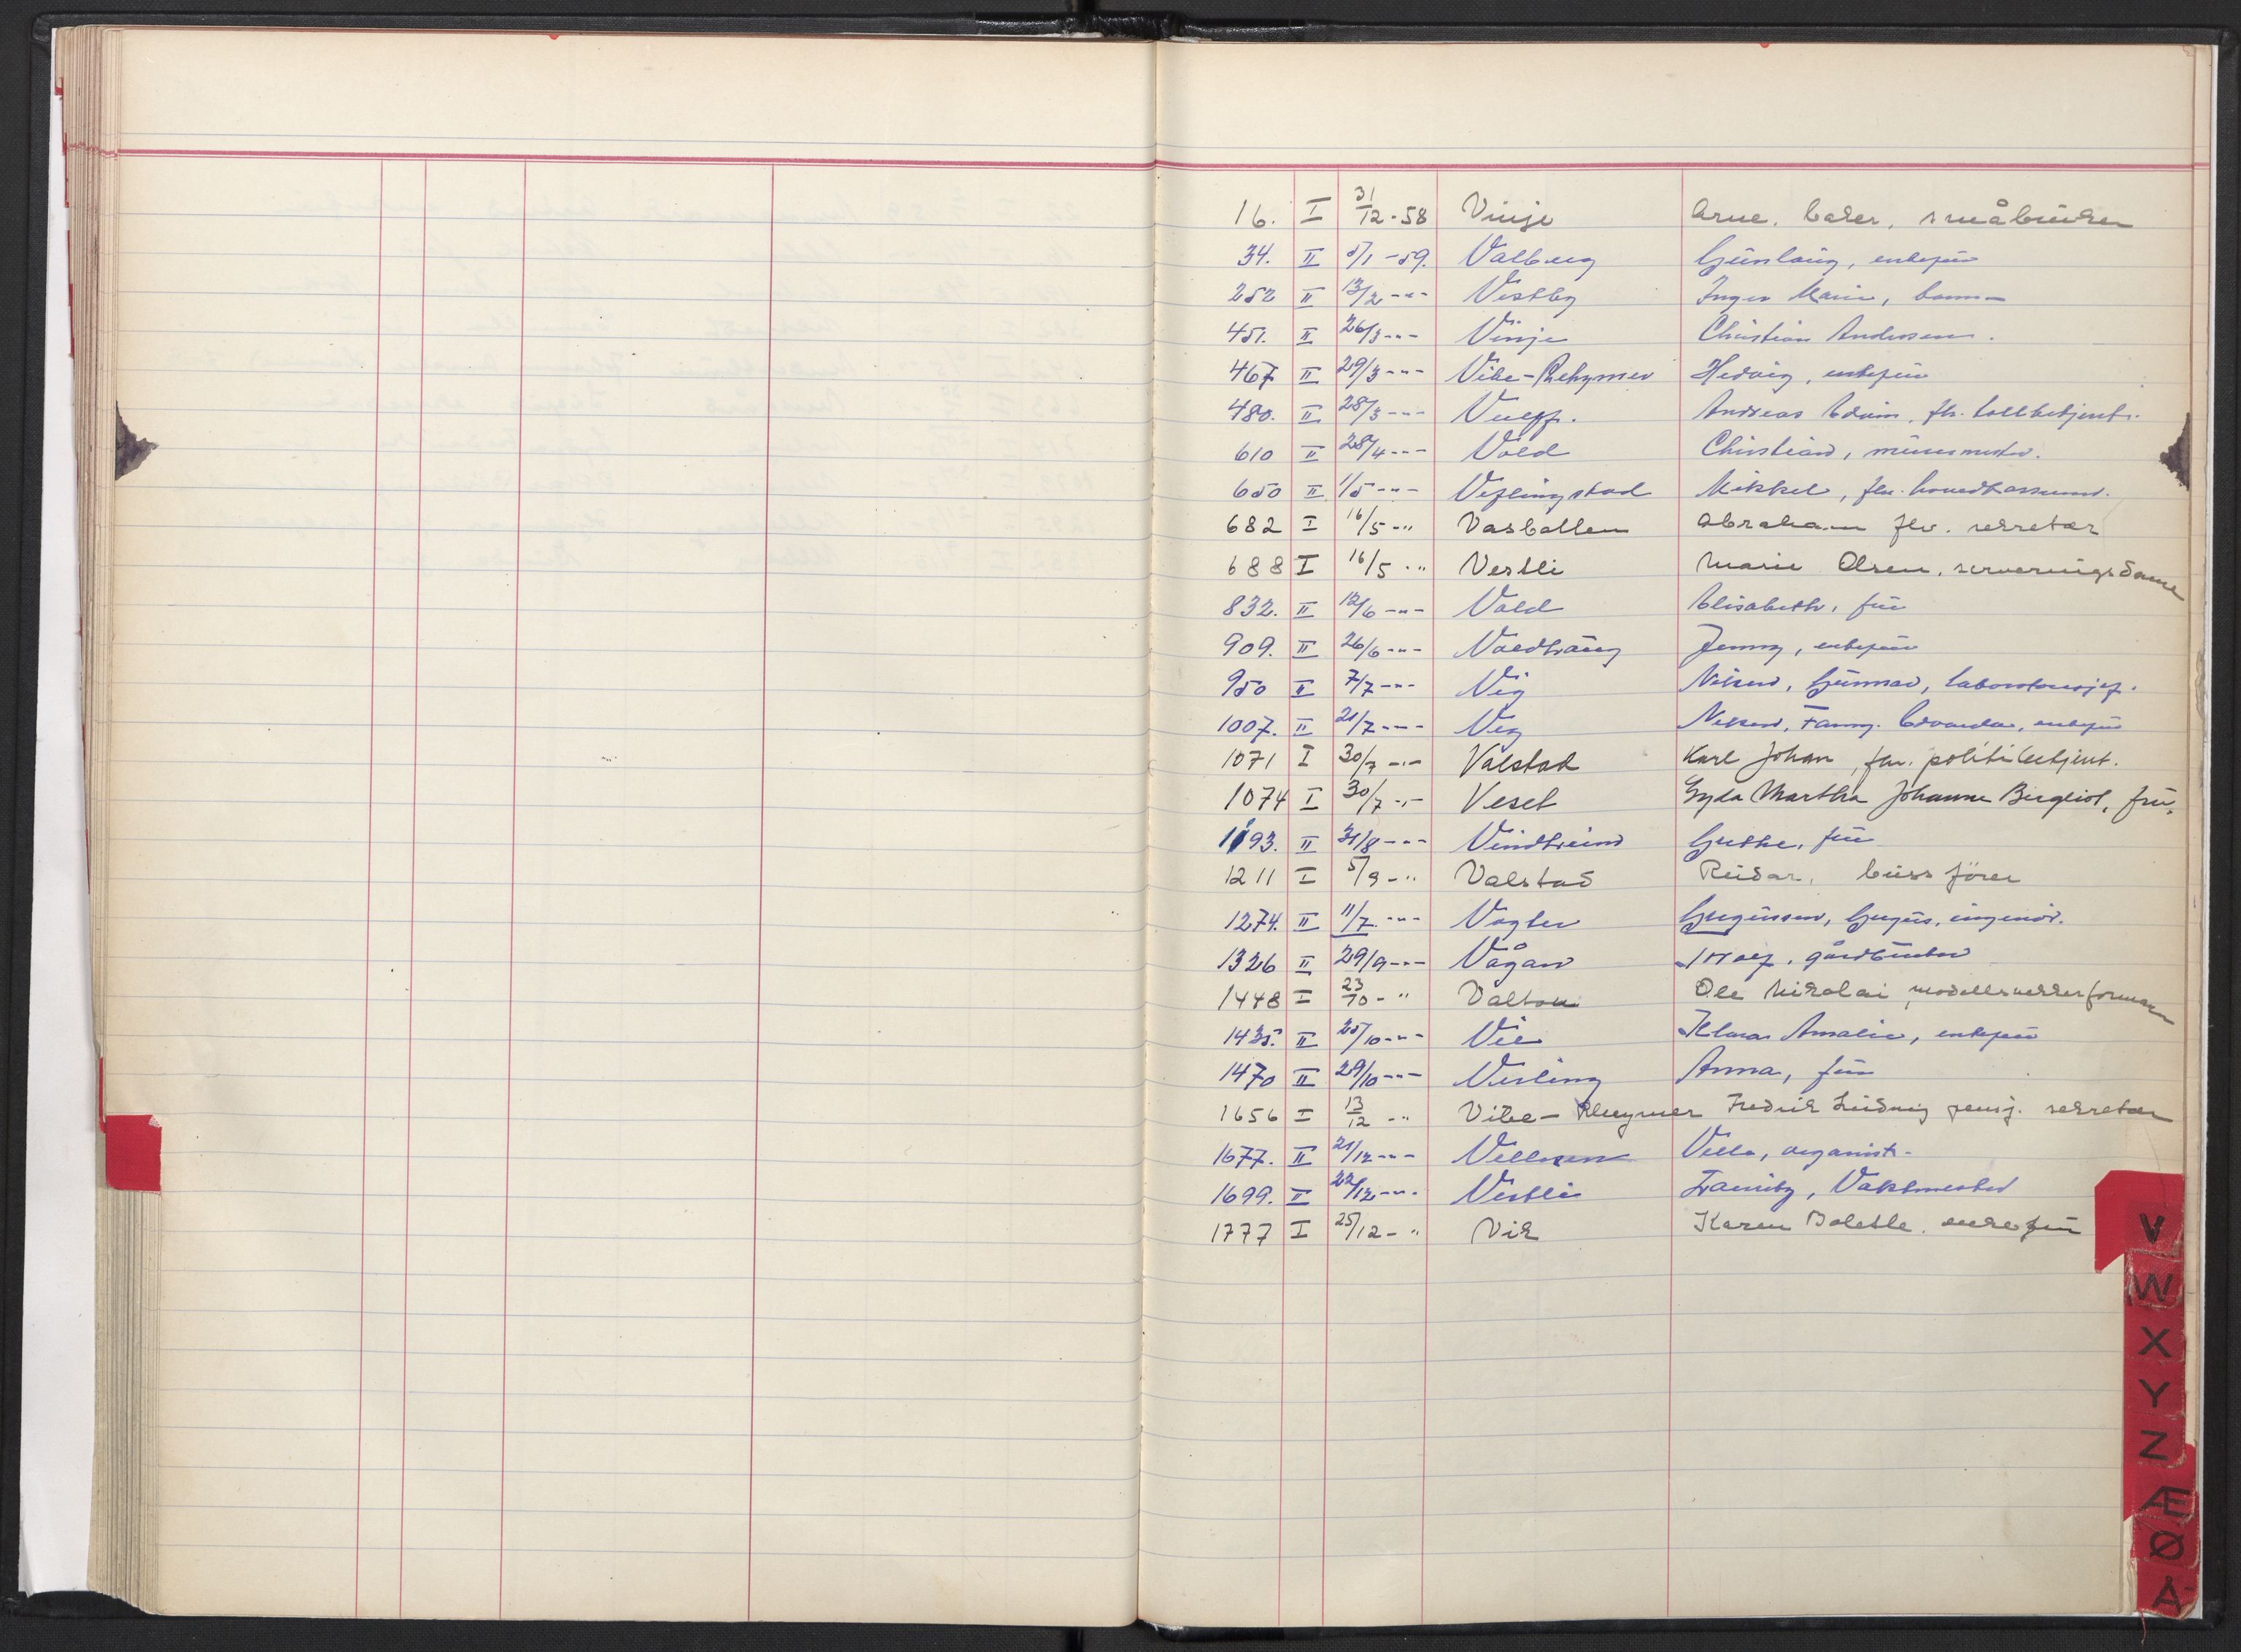 16. I 31/12-58 Vinje Arne. småbruker
34. II 5/1 -59. Valberg Gunlaug, enkefru
252 II 13/2 -"- Vestby Inger Marie, barn -
451. II 26/3 -"- Vinje Christian Andersen.
467 II 29/3 -"- Vibe-Rehymer Hedvig, enkefru
480. II 28/3 -"- Andreas Edvin, fh. tollbetjent.
610 II 28/4 -"- Vold Christian, murermester.
650 II 1/5 -"- Veflingstad Mikkel, fhv.
682 I 16/5 -" Vasbotten Abraham fhv. sekretær
688 I 16/5 -" Vestli Marie Olsen, serveringsdame
832. II 12/6 -"- Vold Elisabeth, fru
909. II 26/6 -"- Voldhaug Jenny, enkefru
950 II 7/7 -"- Vig Nilsen, Gunnar, laboratoriesjef.
1007. II 21/7 -"- Vig Nilsen, Fanny. Edvarda, enkefru
1071 I 30/7 -"- Valstad Karl Johan, fhv. politibetjent.
1074 I 30/7 -"- Veset Gyda Martha Johanne Bergliot, fru.
1193. II 31/8 -"- Vindheim Grethe, fru
1211 I 5/9 -" Valstad Reidar, bussfører
1274. II 11/7 -"- Vogler Gregersen, ingeniør.
1326 II 29/9 -"- Vågan gårdbruker
1448 I 23/10 -" Ole Nikolai modellsnekkerformann
1435. II 25/10 -"- Vie Amalie, enkefru
1470 II 29/10 -"- Anna, fru
1656 I 13/12 -" Vibe- Rheymer Fredrik Ludvig pensj. sekretær
1677. II 21/12 -"- organist.
1699. II 22/12 -"- Vestli Vaktmester
1777 I 25/12 -" Vik Karen Bolette. enkefru
V
W
X
Y
Z
Æ
Ø
Å